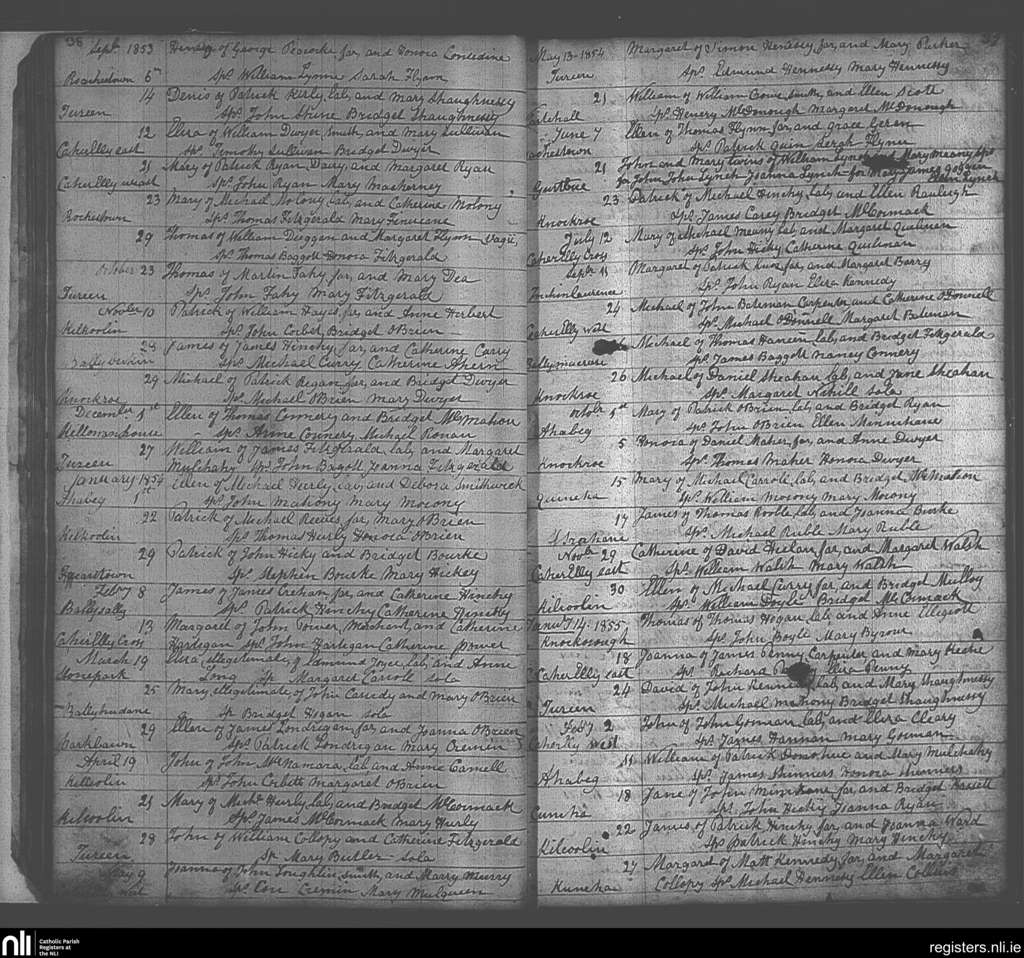 38
Sept. 1853 Henry of George Peacocke far, and Honora Considine
Roachestown 6th Sps. William Lynne Sarah Flynn
14 Denis of Patrick Kirly, lab, and Mary Shaughnessy
Tureen Sps. John Shine Bridget Shaughnessy
12 Eliza of William Dwyer Smith, and Mary Sullivan
CaherElly east Sps. Timothy Sullivan Bridget Dwyer
21 Mary of Patrick Ryan Dairy, and Margaret Ryan
CaherElly west Sps. John Ryan Mary
23 Mary of Michael Molony, lab, and Catherine Molony
Rochestown Sps. Thomas Fitzgerald Mary Finucane
29 Thomas of William Duggan and Margaret Flynn
Sps. Thomas Baggott Honora Fitzgerald
October 23 Thomas of Martin Fahy far, and Mary Dea
Tureen Sps. John Fahy Mary Fitzgerald
Novber 10 Patrick of William Hayes, far, and Anne Herbert
Kilkoolin Sps. John Corbet, Bridget OBrien
23 James of James Hinchy, far, and Catherine Curry
Sps. Michael Curry Catherine Ahern
29 Michael of Patrick Regan, far, and Bridget Dwyer
Knockroe Sps. Michael OBrien Mary Dwyer
December 1st Ellen of Thomas Connery and Bridget McMahon
Sps. Anne Connery Michael Ronan
27 William of James Fitzgerald, lab, and Margaret
Tureen Mulchahy Sps. John Bagott Joanna Fitzgerald
January 1854 Ellen of Michael Herly, lab, and Debora Smithwick
Ahabeg 1st Sps. John Mahony Mary Mocony
22 Patrick of Michael Reeves far, Mary OBrien
Sps. Thomas Hurly Honora OBrien
29 Patrick of John Hicky and Bridget Bourke
Sps. Stephen Bourke Mary Hickey
Feby 8 James of James Creham far, and Catherine Hinchy
Ballysally Sps. Patrick Hinchy Catherine Hinchy
13 Margaret of John Power, Merchant, and Catherine
CaherElly Cross Hartegan Sps. John Hartegan Catherine Power
March 19 Eliza, illegitimate, of Edmund Joyce, lab, and Anne
Stonepark Long Sp. Margaret Carroll sola
25 Mary, illegitimate, of John Cassidy, and Mary OBrien
Sp. Bridget Hogan sola
29 Ellen of James Londregan, far, and Joanna OBrien
Parkbawn Sps. Patrick Londregan Mary Cremen
April 19 John of John McNamara, lab, and Anne Cannell
Sps. John Corbett Margaret OBrien
21 Mary of Michl. Hurly, lab, and Bridget McCormack
Kilcoolin Sps. James McCormack Mary Hurly
28 John of William Collopy and Catherine Fitzgerald
Tureen Sp. Mary Butler sola
May 9 Joanna of John Loughlin, Smith, and Mary Murry
Sps. Con Cremin Mary Mulqueen
39
May 13 1854 Margaret of Simon Hennessy, far, and Mary Parker
Tureen Sps. Edmund Hennessy Mary Hennessy
21 William of William Crowe, Smith, and Ellen Scott
Sps. Henery McDonough Margaret McDonough
June 7 Ellen of Thomas Flynn far, and Grace Geran
Sps. Patrick Quin Flynn
21 John and Mary twins of William Lynch and Mary Meany, Sps.
for John John Lynch Joanna Lynch for Mary James
Ellen Lynch
23 Patrick of Michael Hinchy, lab, and Ellen Rauleigh
Knockroe Sps. James Carey Bridget McCormack
July 12 Mary of Michael Meany, lab, and Margaret Quilinan
CaherElly Cross Sps. John Hicky Catherine Quilinan
Septr. 15 Margaret of Patrick Knox far, and Margaret Barry
Sps. John Ryan Eliza Kennedy
24 Michael of John Bateman Carpenter, and Catherine ODonnell
CaherElly West Sps. Michael ODonnell Margaret Bateman
Michael of Thomas Hansen, lab, and Bridget Fitzgerald
Sps. James Baggott Nancy Connery
26 Michael of Daniel Sheahan lab, and Jane Sheahan
Knockroe Sps. Margaret Nahill Sola
October 1st Mary of Patrick OBrien, lab, and Bridget Ryan
Ahabeg Sps. John OBrien Ellen Minnihane
5 Honora of Daniel Maher, far, and Anne Dwyer
Knockroe Sps. Thomas Maher Honora Dwyer
15 Mary of Michael Carroll, lab, and Bridget McMahon
Sps. William Mocony Mary Mocony
17 James of Thomas Rooble, lab, and Joanna Burke
Sps. Michael Ruble Mary Ruble
Novbr 29 Catherine of David Heelan, far, and Margaret Walsh
CaherElly east Sps. William Walsh Mary Walsh
30 Ellen of Michael Curry far, and Bridget Mulloy
Kilcoolin Sps. William Doyle Bridget McCormack
14: 1855 Thomas of Thomas Hogan, lab, and Anne Elligott
Sps. John Boyle Mary Byrone
18 Joanna of James Penny Carpenter and Mary
CaherElly east Sps. Richard Eliza Penny
24 David of John Kennedy, lab, and Mary Shaughnessy
Tureen Sps. Michael Mahony Bridget Shaughnessy
Feby 2 John of John Gorman, lab, and Eliza Cleary
CaherElly West Sps. James Hannan Mary Gorman
11 William of Patrick Donohue and Mary Mulchahy
Ahabeg Sps. James Skinners Honora Skinners
18 Jane of John Minihane far, and Bridget
Sps. John Hicky Joanna Ryan
22 James of Patrick Hinchy far, and Joanna Ward
Kilcoolin Sps. Patrick Hinchy Mary Hinchy
27 Margaret of Matt Kennedy, far, and Margaret
Collopy Sps. Michael Hennessy Ellen Collins
nli
Catholic Parish
Registers at
the NLI
registers.nli.ie